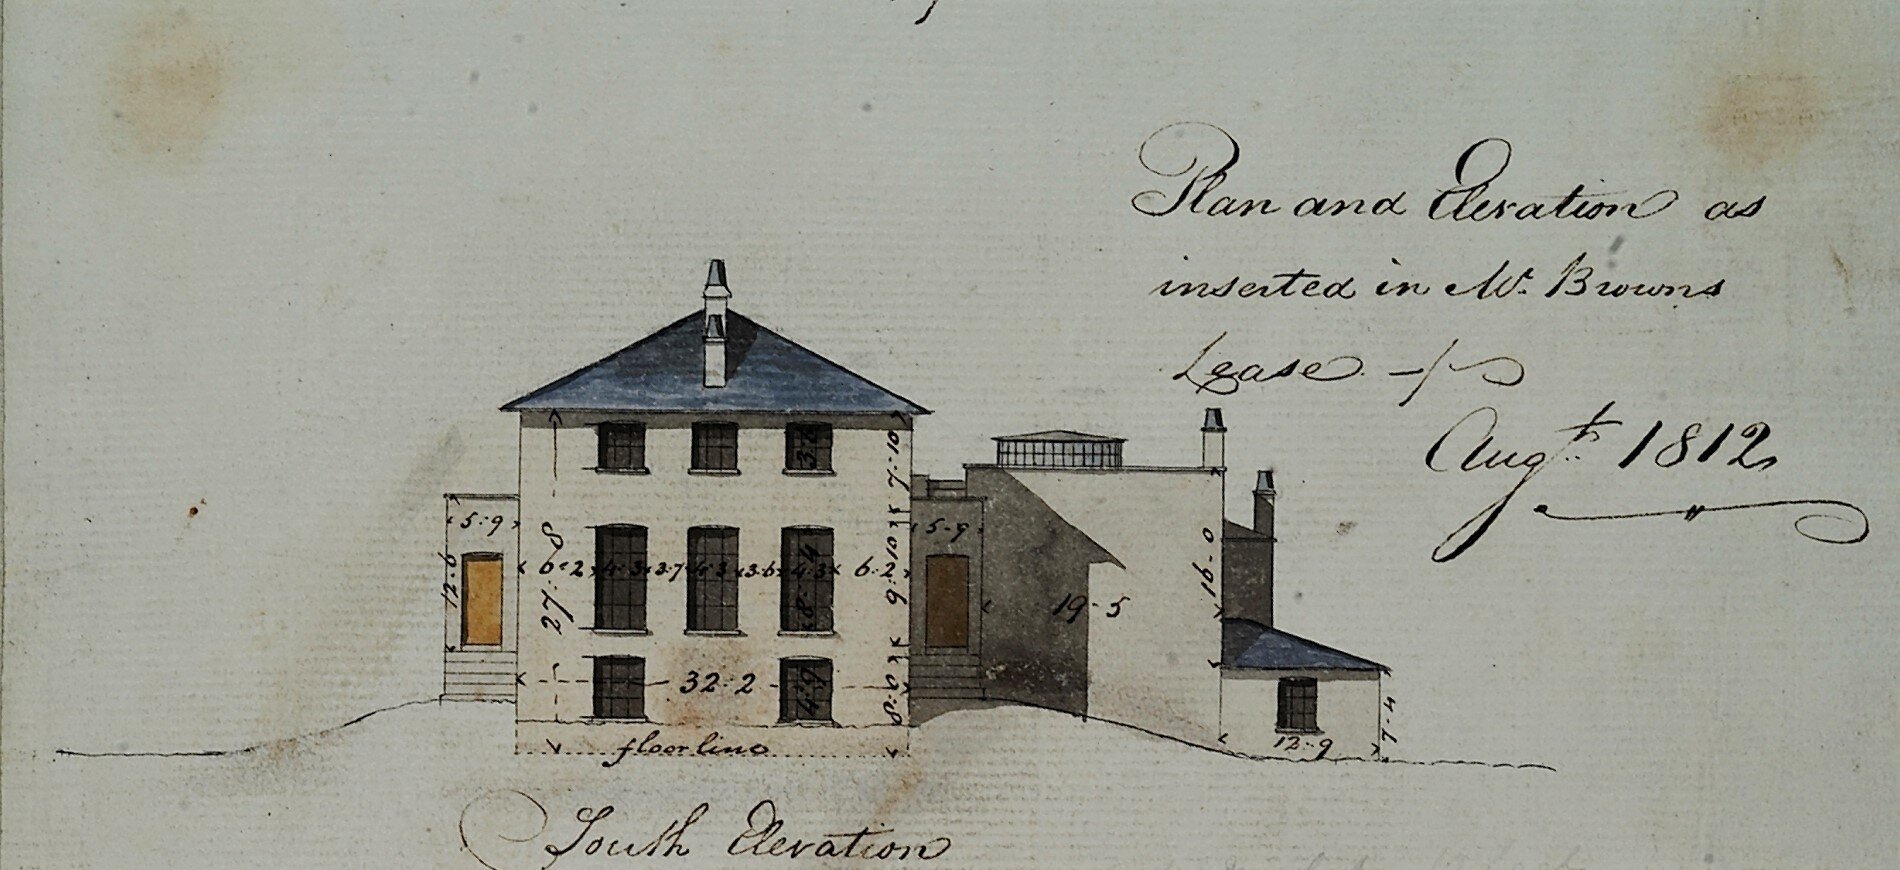 Plan and Elevation as
inserted in Mr. Browns
Lease
Augt. 1812
7-10
5-9
5-9
27-8
12-6
6-2 4-3 3-7 4-3 3-6 4-3 6-2
8-4
9-10
16-0
19-5
32-2
4-9
8-0
7-4
12-9
floor line
South Elevation